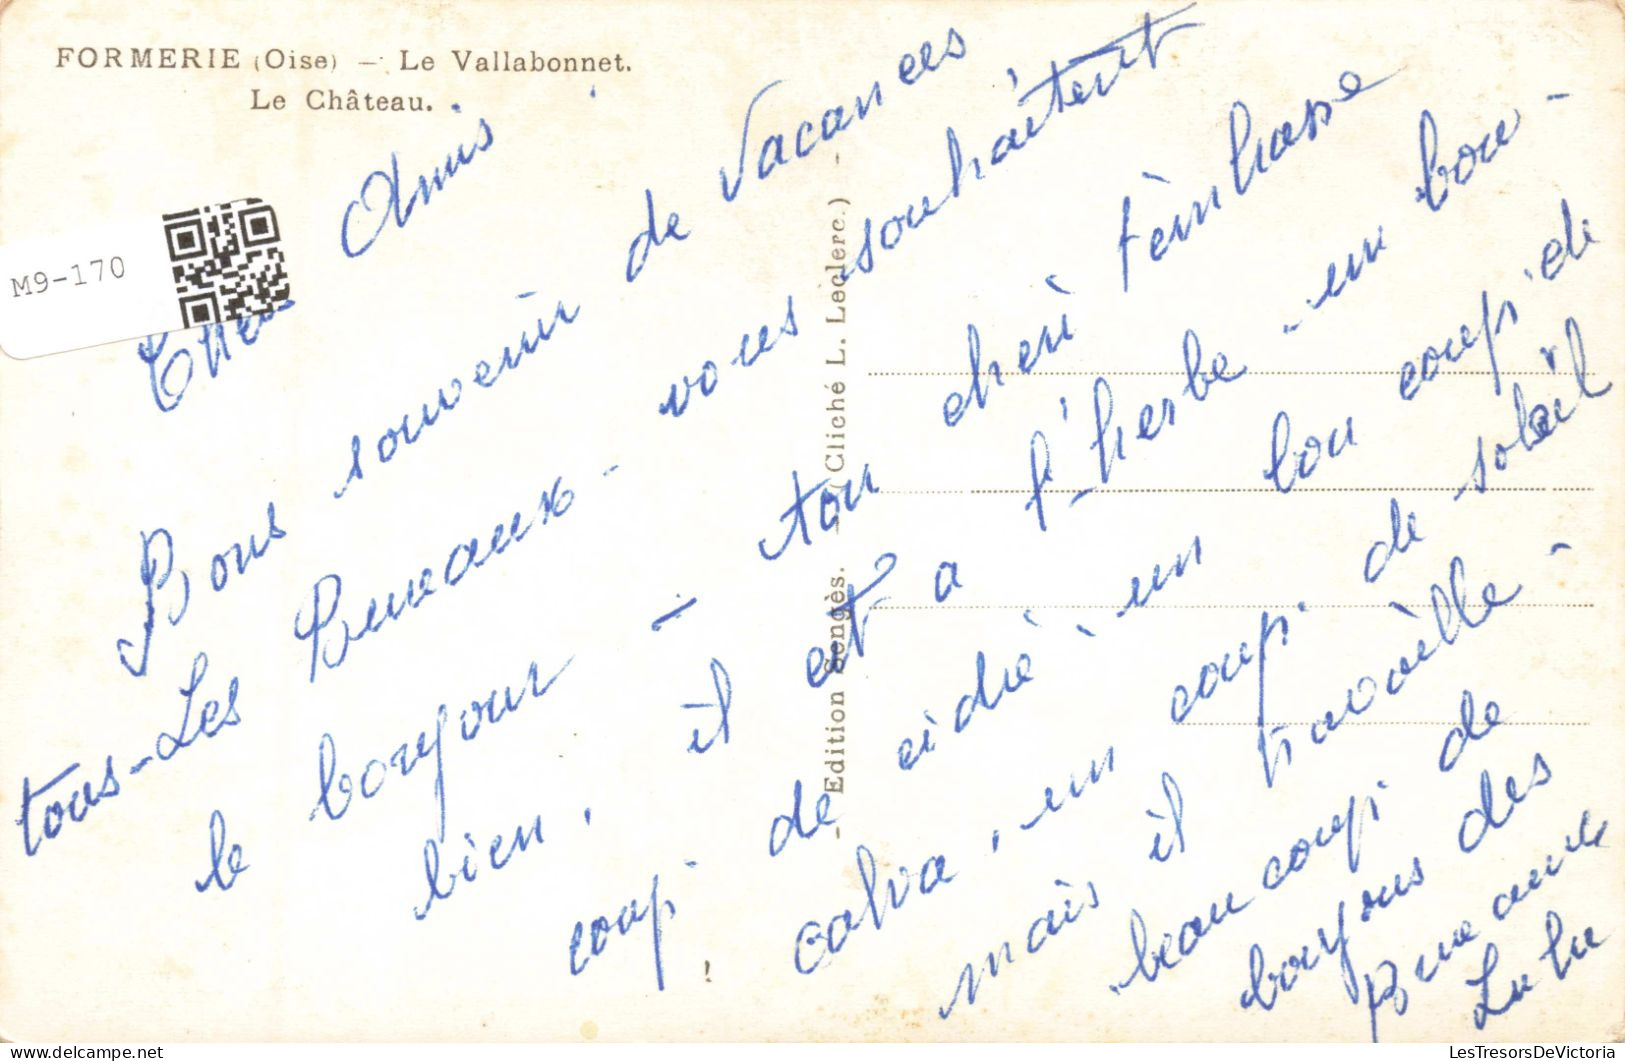 FORMERIE (Oise) — Le Vallabonnet.
Le Château.
M9-170
Amis
Bons souvenir de Vacances
tous - Les Bureaux - vous souhaitent
le bonjour - ton cheri
bien, il est a l'herbe - un bon -
coup de cidre, un bon coup de
calva, un coup de soleil
mais il travaille -
beaucoup de
bonjours des
Lulu
- Edition Sengès. - (Cliché L. Leclerc.) -
LesTresorsDeVictoria.com